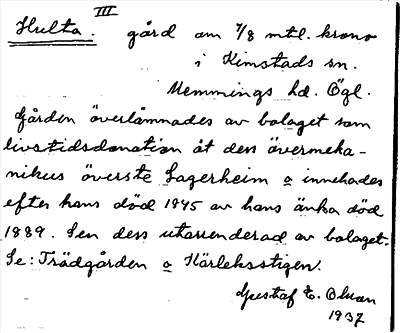 III
Hulta. gård om 7/8 mtl. krono
i Kimstads sn.
Memmings hd. Ögl.
Gården överlämnades av bolaget som
livstidsdonation åt den övermeka-
nikus överste Lagerheim o innehades
efter hans död 1845 av hans änka död
1889. Sen dess utarrenderad av bolaget.
Se: Trädgården o Kärleksstigen.
Gustaf E.
1937